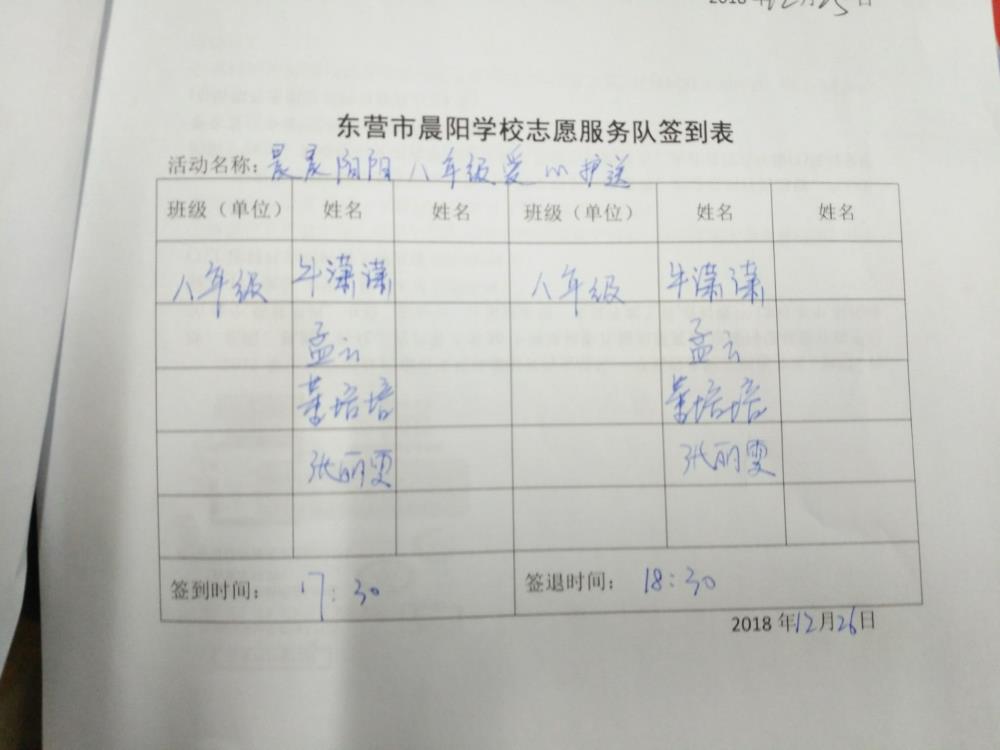 2018年12月25日
东营市晨阳学校志愿服务队签到表
活动名称：晨晨阳阳八年级爱心护送
班级（单位） 姓名 姓名 班级（单位） 姓名 姓名
八年级 牛潇潇 八年级 牛潇潇
孟云 孟云
董培培 董培培
张丽雯 张丽雯
签到时间： 17:30 签退时间： 18:30
2018年12月26日